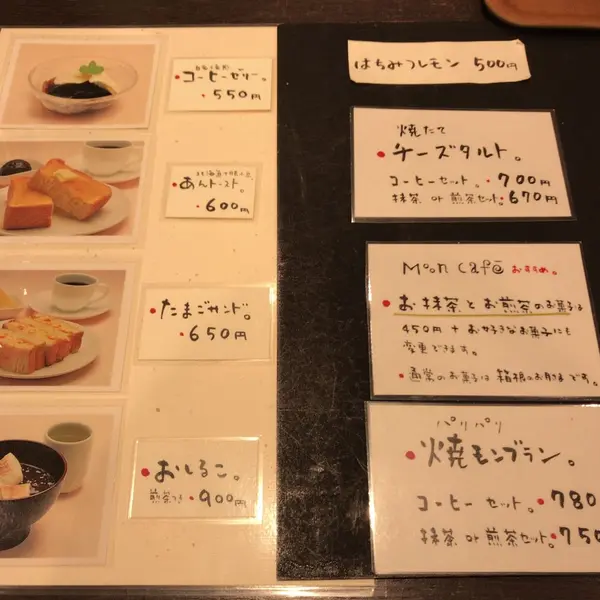 コーヒーゼリー。
・550円
北海道小豆
・あんトースト。
・600円
・たまごサンド。
・650円
・おしるこ。
煎茶つき・900円
はちみつレモン 500円
焼たて
・チーズタルト。
コーヒーセット。・700円
抹茶 or 煎茶セット。・670円
Moon Café おすすめ。
・お抹茶とお煎茶のお菓子は
450円 + お好きなお菓子にも
変更できます。
・通常のお菓子は 箱根のお月さま です。
パリパリ
・焼モンブラン。
コーヒー セット。・780
抹茶 or 煎茶セット。・750